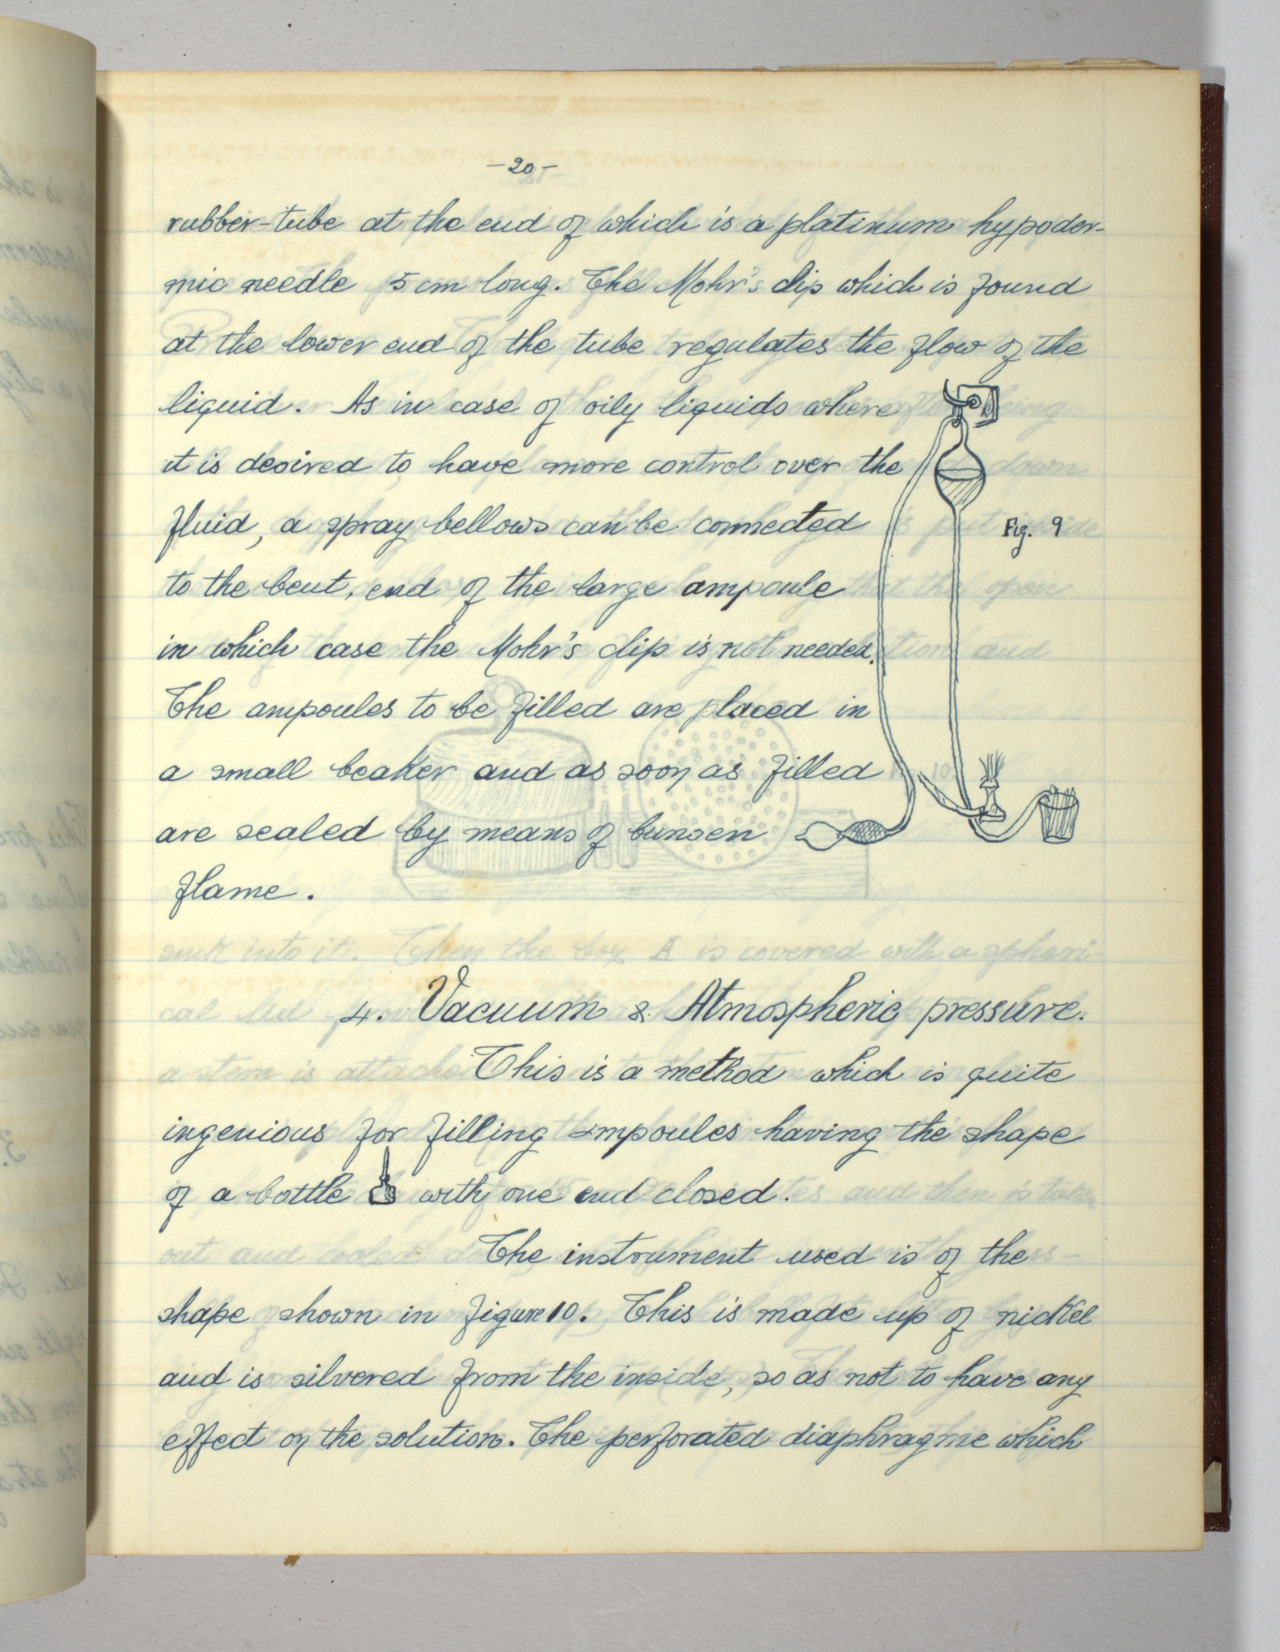 -20-
rubber-tube at the end of which is a platinum hypoder-
mic needle 5 cm long. The Mohr's clip which is found
at the lower end of the tube regulates the flow of the
liquid. As in case of oily liquids where
it is desired to have more control over the
fluid, a spray bellows can be connected
Fig. 9
to the bent end of the large ampoule
in which case the Mohr's clip is not needed.
The ampoules to be filled are placed in
a small beaker and as soon as filled
are sealed by means of bunsen
flame.
4. Vacuum & Atmospheric pressure.
This is a method which is quite
ingenious for filling ampoules having the shape
of a bottle with one end closed.
The instrument used is of the
shape shown in figure 10. This is made up of nickel
and is silvered from the inside, so as not to have any
effect on the solution. The perforated diaphragme which